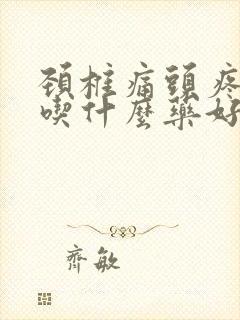 頚椎痛頭疼
喫什麼藥好
齊敏